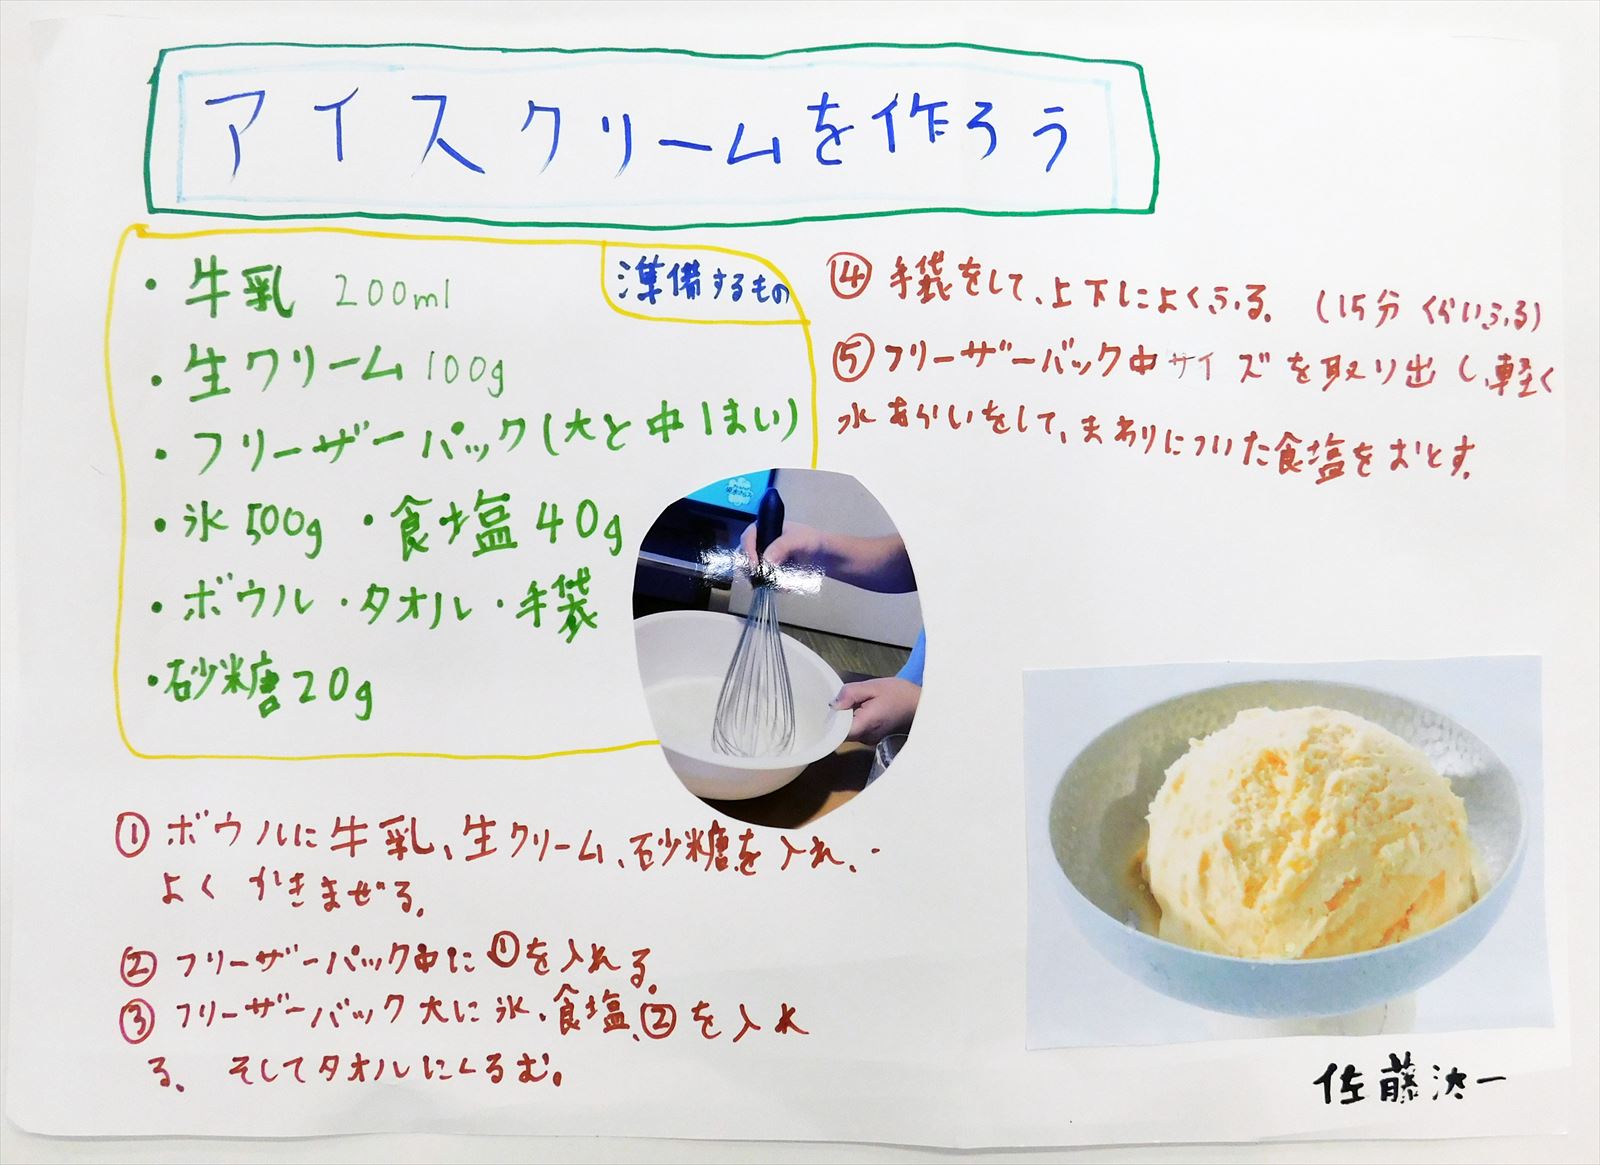 アイスクリームを作ろう
準備するもの
・牛乳 200ml
・生クリーム 100g
・フリーザーパック(大と中1まい)
・氷500g ・食塩40g
・ボウル・タオル・手袋
・砂糖20g
①ボウルに牛乳、生クリーム、砂糖を入れ、
よくかきまぜる。
②フリーザーパック中に①を入れる。
③フリーザーバック大に氷、食塩、②を入れ
る。そしてタオルにくるむ。
④手袋をして、上下によくふる。(15分くらいふる)
⑤フリーザーバック中サイズを取り出し、軽く
水あらいをして、まわりについた食塩をおとす。
佐藤 一